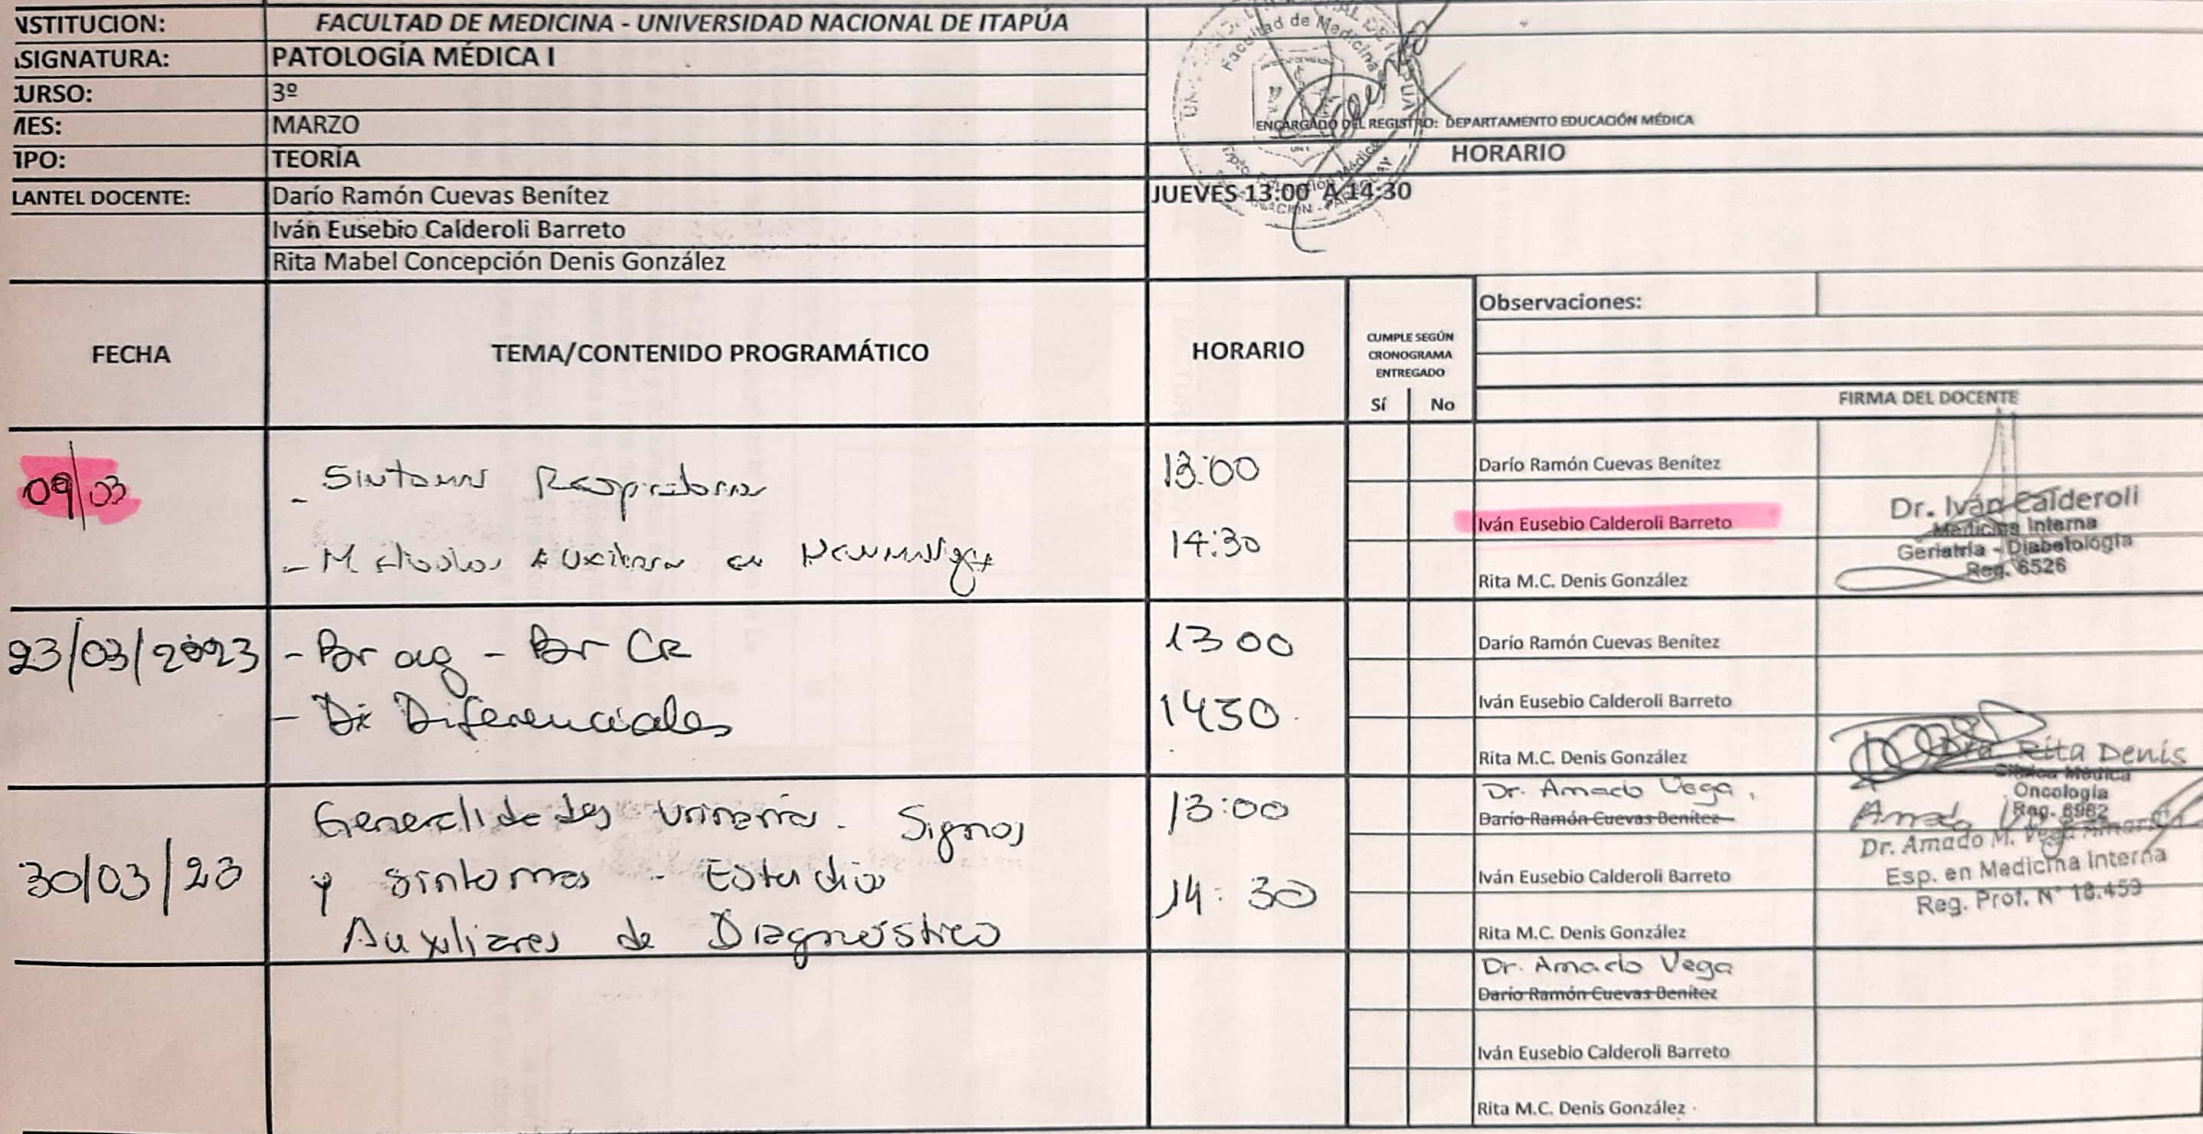 NSTITUCION: FACULTAD DE MEDICINA - UNIVERSIDAD NACIONAL DE ITAPÚA
SIGNATURA: PATOLOGÍA MÉDICA I
URSO: 3º
MES: MARZO
IPO: TEORÍA
LANTEL DOCENTE: Darío Ramón Cuevas Benítez
Iván Eusebio Calderoli Barreto
Rita Mabel Concepción Denis González
Facultad de Medicina
ENCARGADO DEL REGISTRO: DEPARTAMENTO EDUCACIÓN MÉDICA
HORARIO
JUEVES 13:00 A 14:30
FECHA TEMA/CONTENIDO PROGRAMÁTICO HORARIO
CUMPLE SEGÚN
CRONOGRAMA
ENTREGADO
Sí No
Observaciones:
FIRMA DEL DOCENTE
09/03
- Sintomas Respiratorios
- Metodos Auxiliares en Neumologia
13:00
14:30
Darío Ramón Cuevas Benítez
Iván Eusebio Calderoli Barreto
Rita M.C. Denis González
Dr. Iván Calderoli
Medicina Interna
Geriatría - Diabetología
Reg. 6526
23/03/2023
- Br ag - Br CR
- Dx Diferenciales
13 00
14 30
Darío Ramón Cuevas Benítez
Iván Eusebio Calderoli Barreto
Rita M.C. Denis González
Dra Rita Denis
Clínica Médica
Oncología
Reg. 6982
30/03/23
Generalidades urinarias. Signos
y sintomas - Estudios
Auxiliares de Diagnóstico
13:00
14:30
Dr. Amado Vega
Darío Ramón Cuevas Benítez
Iván Eusebio Calderoli Barreto
Rita M.C. Denis González
Dr. Amado M. Vega
Esp. en Medicina Interna
Reg. Prof. N° 18.459
Dr. Amado Vega
Darío Ramón Cuevas Benítez
Iván Eusebio Calderoli Barreto
Rita M.C. Denis González